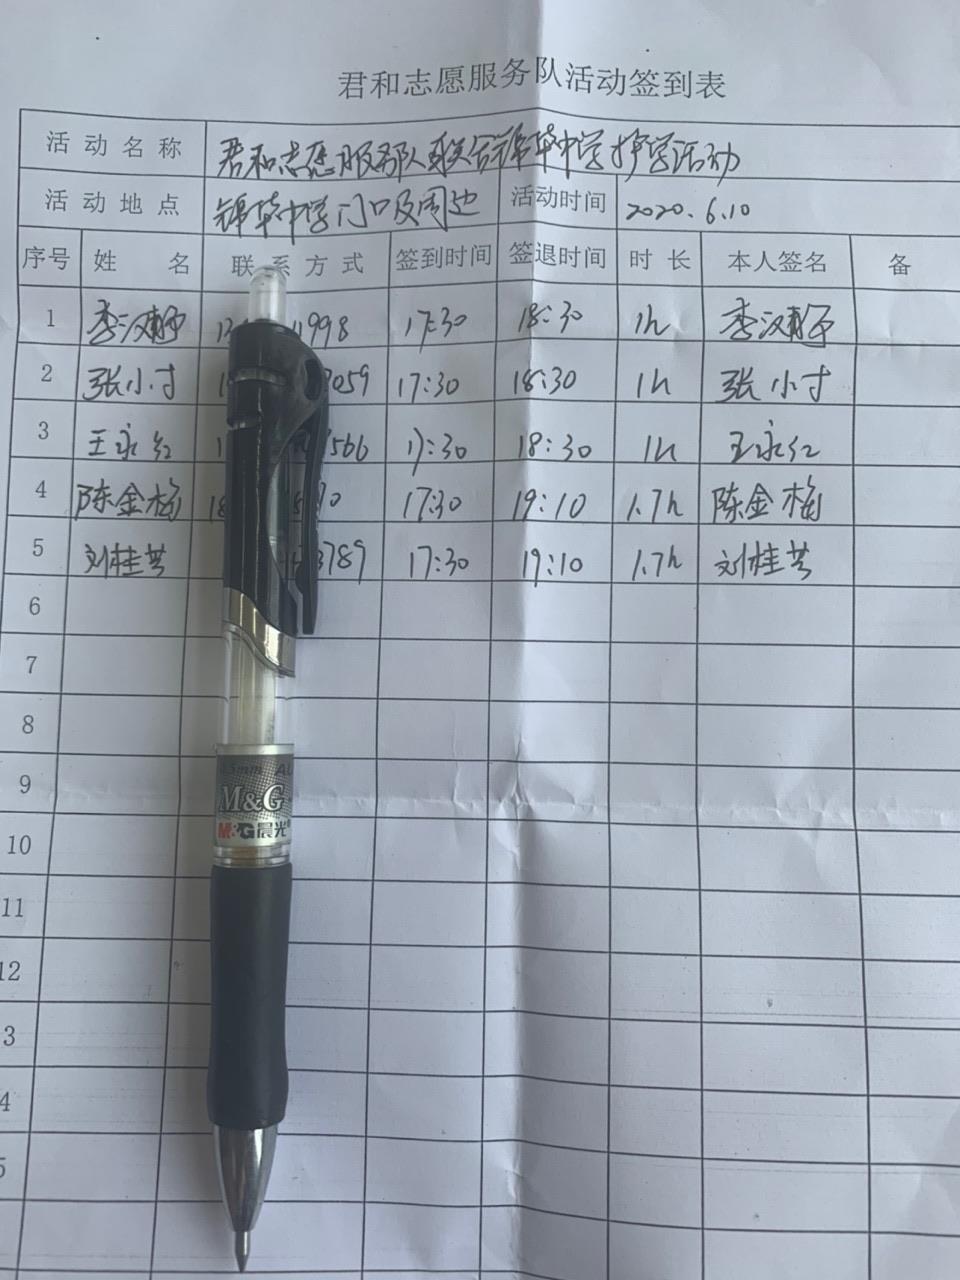 君和志愿服务队活动签到表
活动名称 君和志愿服务队联合锦华中学护学活动
活动地点 锦华中学门口及周边 活动时间 2020.6.10
序号 姓 名 联系方式 签到时间 签退时间 时长 本人签名 备
1 李汉 998 17:30 18:30 1h 李汉
2 张小寸 3059 17:30 18:30 1h 张小寸
3 王永红 566 17:30 18:30 1h 王永红
4 陈金梅 18 90 17:30 19:10 1.7h 陈金梅
5 刘桂芸 3789 17:30 19:10 1.7h 刘桂芸
6
7
8
9
10
11
12
3
4
5
0.5mm
M&G
M&G晨光